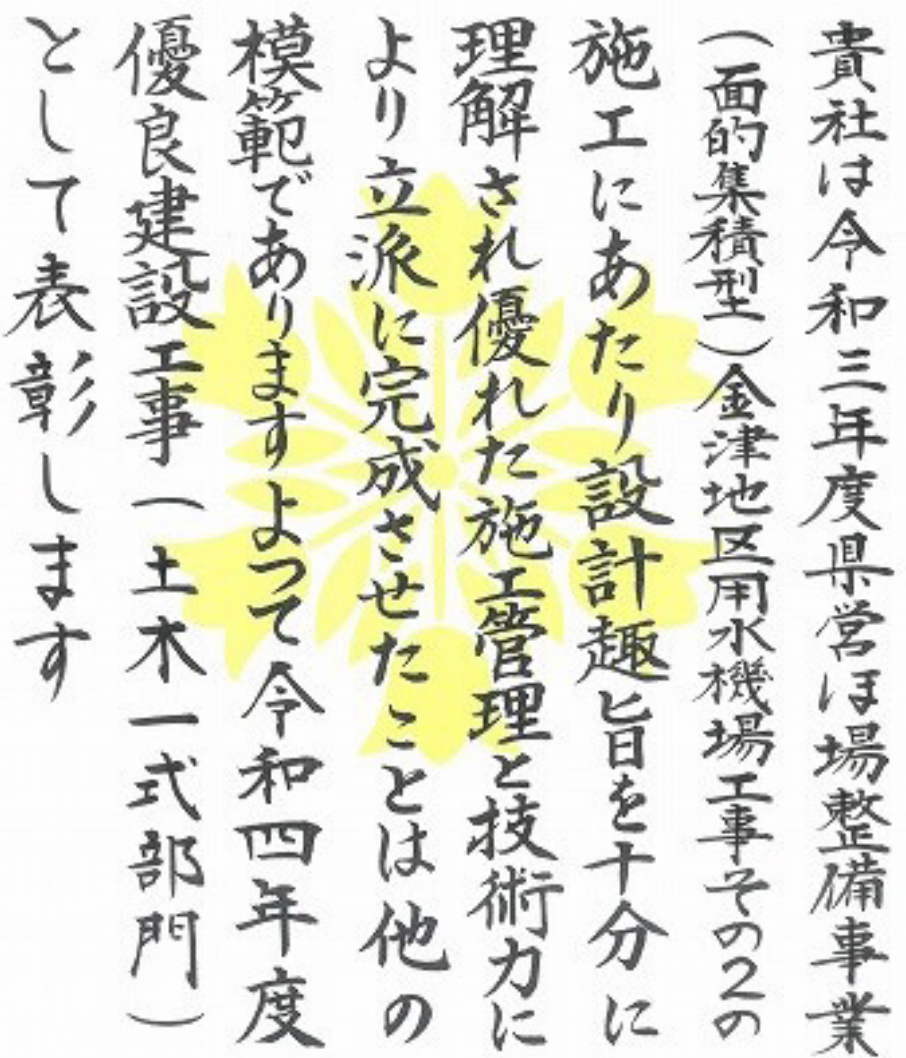 貴社は令和三年度県営ほ場整備事業
（面的集積型）金津地区用水機場工事その2の
施工にあたり設計趣旨を十分に
理解され優れた施工管理と技術力に
より立派に完成させたことは他の
模範でありますよつて令和四年度
優良建設工事（土木一式部門）
として表彰します